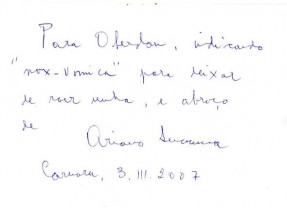 Para Oferdan, indicando
"nox-vomica" para deixar
de roer unha, e abraço
de
Ariano Suassuna
Caruaru, 3.III.2007